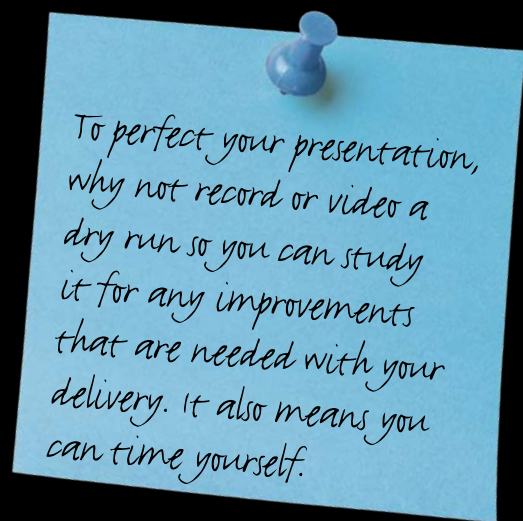 To perfect your presentation,
why not record or video a
dry run so you can study
it for any improvements
that are needed with your
delivery. It also means you
can time yourself.